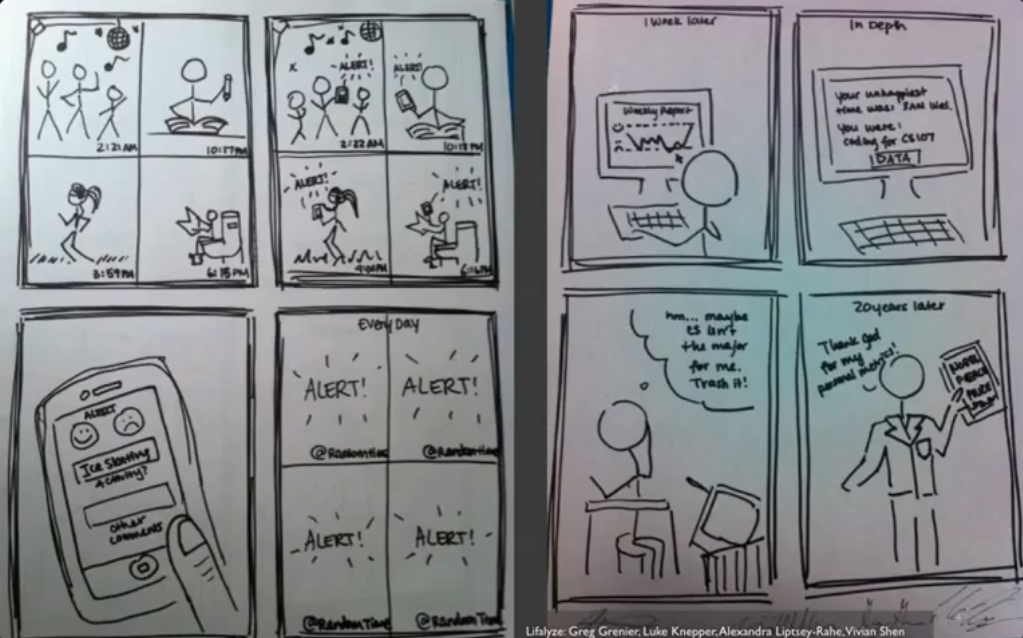 2:21 AM
10:17 PM
3:59 PM
6:15 PM
ALERT!
ALERT!
2:22 AM
10:18 PM
ALERT!
ALERT!
4:00 PM
6:16 PM
ALERT
Ice Skating
Activity?
Other
comments
Every Day
ALERT!
ALERT!
@Random time
@Random time
ALERT!
ALERT!
@Random Time
@Random Time
1 Week later
Weekly Report
In Depth
Your unhappiest
time was: 3AM Wed.
You were:
coding for CS107
DATA
hm... maybe
CS isn't
the major
for me.
Trash it!
20 years later
Thank god
for my
personal metrics!
NOBEL
PEACE
PRIZE
Lifalyze: Greg Grenier, Luke Knepper, Alexandra Liptsey-Rahe, Vivian Shen